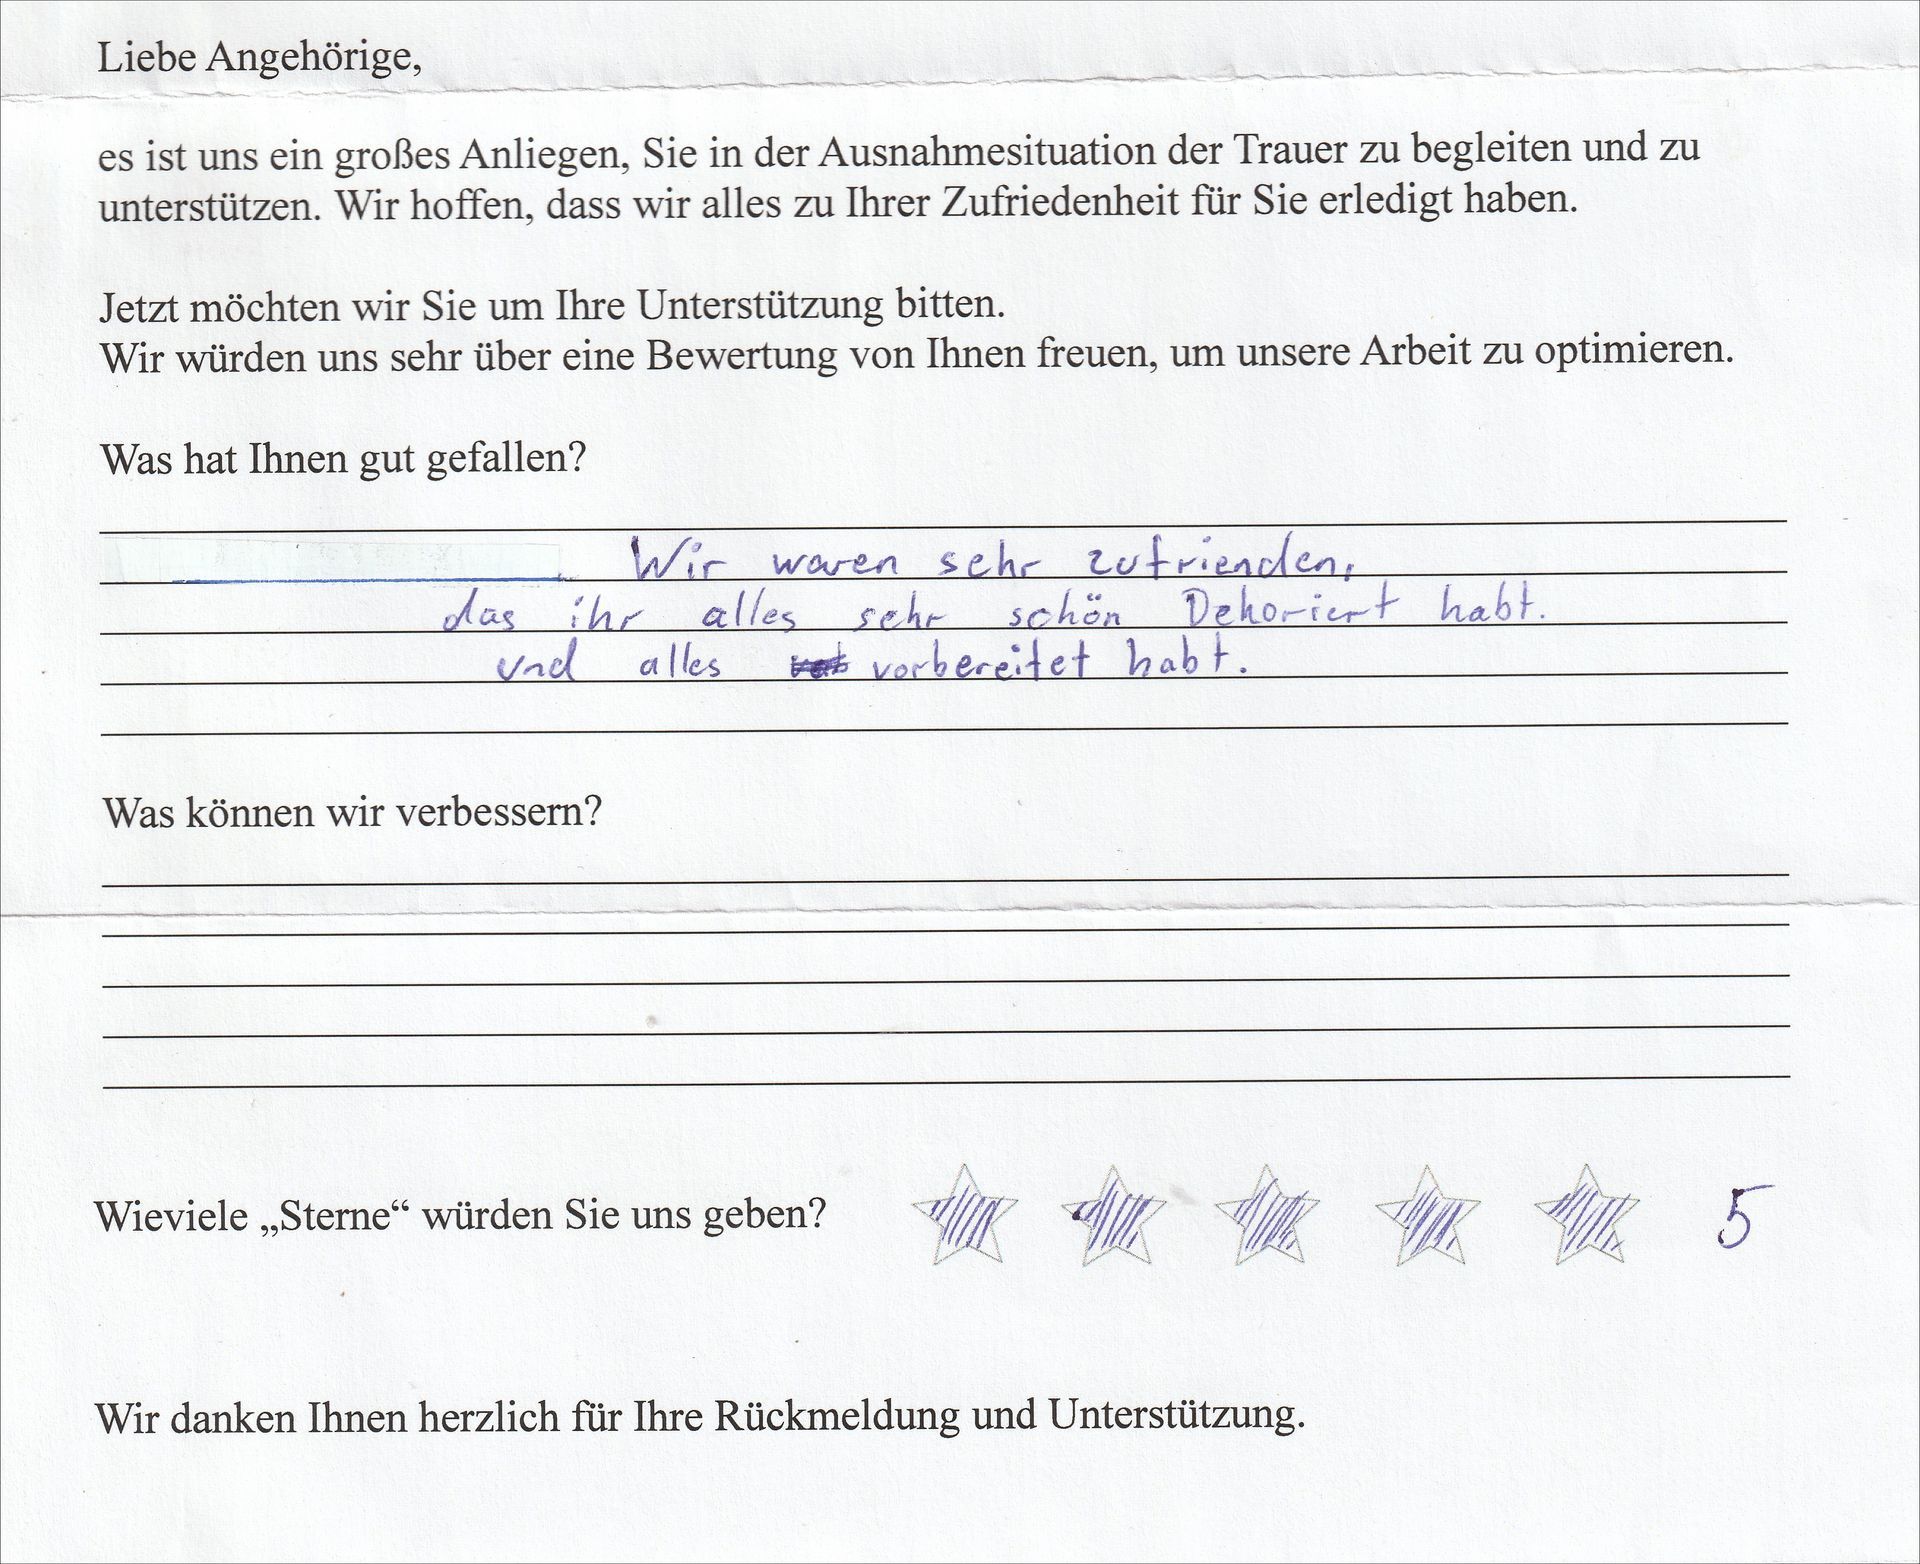 Liebe Angehörige,
es ist uns ein großes Anliegen, Sie in der Ausnahmesituation der Trauer zu begleiten und zu
unterstützen. Wir hoffen, dass wir alles zu Ihrer Zufriedenheit für Sie erledigt haben.
Jetzt möchten wir Sie um Ihre Unterstützung bitten.
Wir würden uns sehr über eine Bewertung von Ihnen freuen, um unsere Arbeit zu optimieren.
Was hat Ihnen gut gefallen?
Wir waren sehr zufrienden,
das ihr alles sehr schön Dekoriert habt.
und alles vorbereitet habt.
Was können wir verbessern?
Wieviele „Sterne“ würden Sie uns geben? 5
Wir danken Ihnen herzlich für Ihre Rückmeldung und Unterstützung.